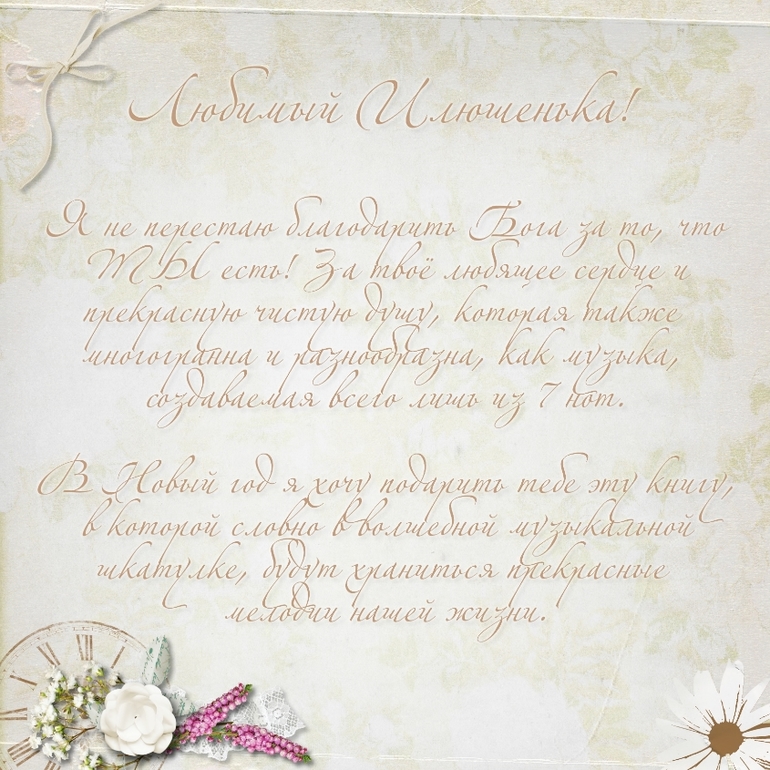 Любимый Илюшенька!
Я не перестаю благодарить Бога за то, что
ТЫ есть! За твоё любящее сердце и
прекрасную чистую душу, которая также
многогранна и разнообразна, как музыка,
создаваемая всего лишь из 7 нот.
В Новый год я хочу подарить тебе эту книгу,
в которой словно в волшебной музыкальной
шкатулке, будут храниться прекрасные
мелодии нашей жизни.